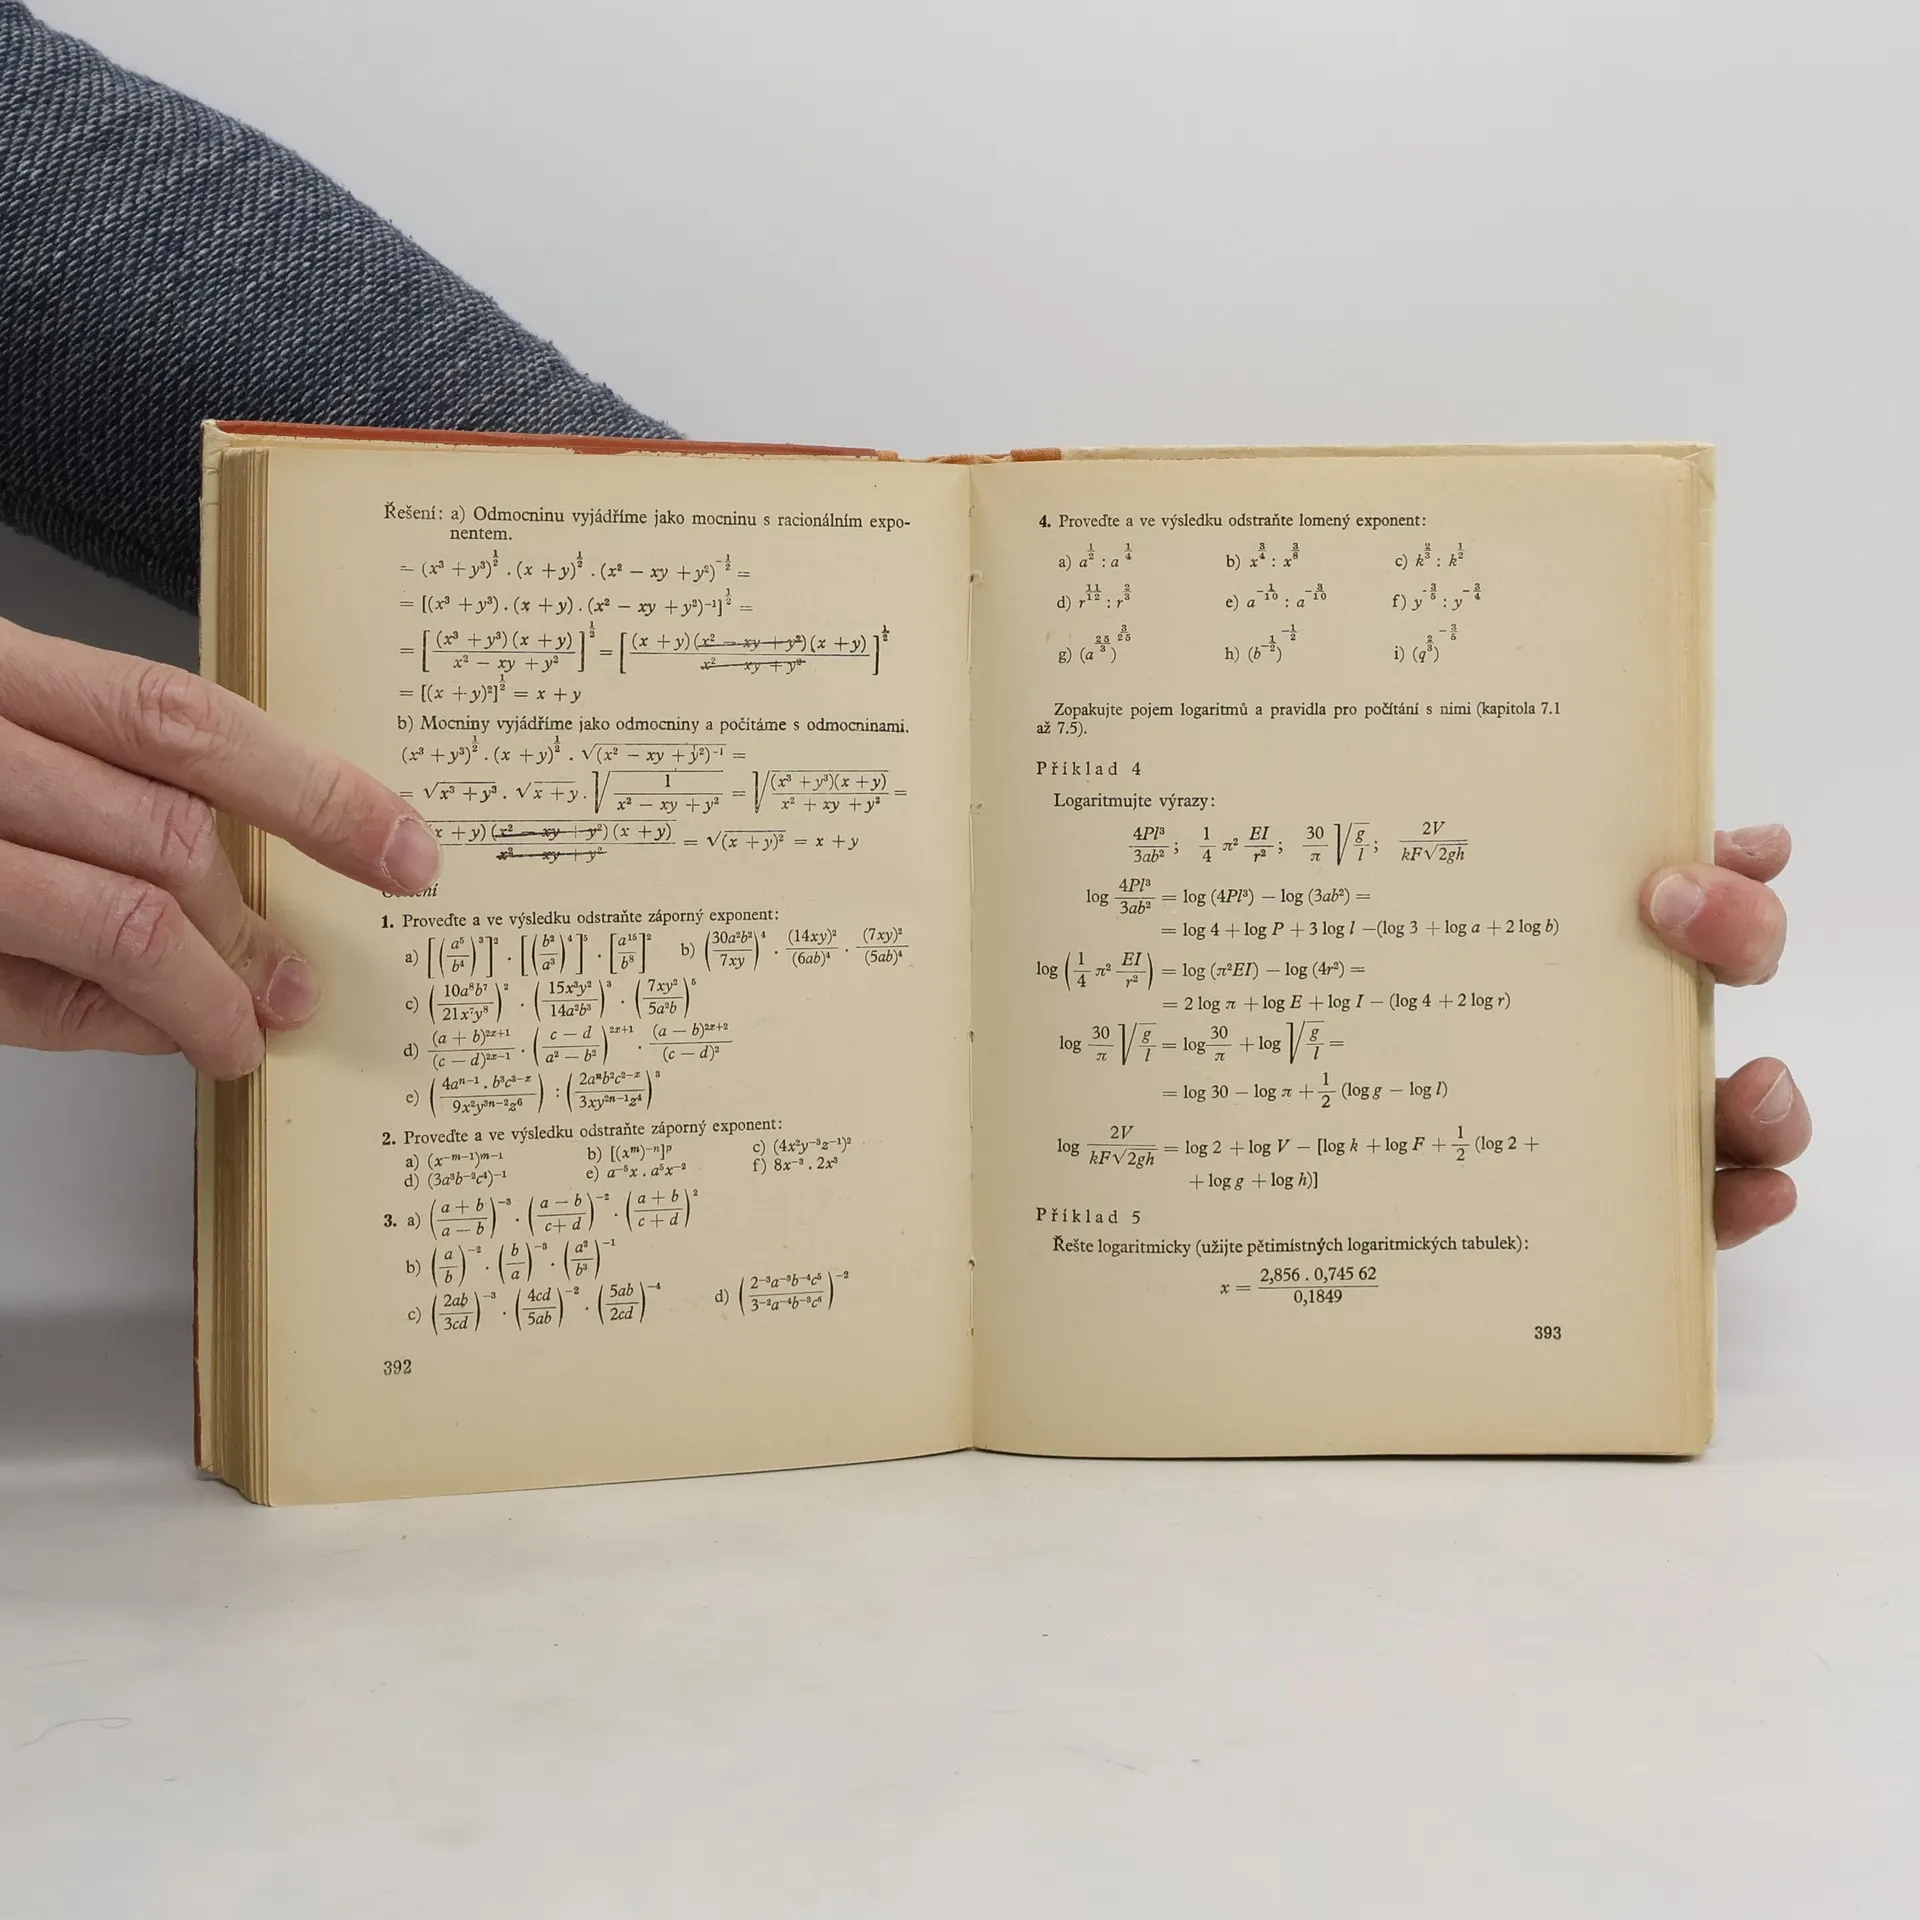 Řešení: a) Odmocninu vyjádříme jako mocninu s racionálním expo-
nentem.
= (x³ + y³)^{1/2} . (x + y)^{1/2} . (x² − xy + y²)^{−1/2} =
= [(x³ + y³) . (x + y) . (x² − xy + y²)⁻¹]^{1/2} =
= [(x³ + y³) (x + y) / (x² − xy + y²)]^{1/2} = [(x + y) (x² − xy + y²) (x + y) / (x² − xy + y²)]^{1/2}
= [(x + y)²]^{1/2} = x + y
b) Mocniny vyjádříme jako odmocniny a počítáme s odmocninami.
(x³ + y³)^{1/2} . (x + y)^{1/2} . √(x² − xy + y²)⁻¹ =
= √(x³ + y³) . √(x + y) . √(1 / (x² − xy + y²)) = √((x³ + y³)(x + y) / (x² + xy + y²)) =
x + y) (x² − xy + y²) (x + y) / (x² − xy + y²) = √(x + y)² = x + y
1. Proveďte a ve výsledku odstraňte záporný exponent:
a) [(a⁵/b⁴)³]² . [(b²/a³)⁴]⁵ . [a¹⁵/b⁸]² b) (30a²b²/7xy)⁴ . (14xy)²/(6ab)⁴ . (7xy)²/(5ab)⁴
c) (10a⁸b⁷/21x⁷y⁸)² . (15x³y²/14a²b³)³ . (7xy²/5a²b)⁵
d) (a + b)^{2x+1}/(c − d)^{2x−1} . ((c − d)/(a² − b²))^{2x+1} . (a − b)^{2x+2}/(c − d)²
e) (4a^{n−1} . b³c^{3−x} / 9x²y^{3n−2}z⁶) : (2aⁿb²c^{2−x} / 3xy^{2n−1}z⁴)³
2. Proveďte a ve výsledku odstraňte záporný exponent:
a) (x^{−m−1})^{m−1} b) [(x^m)^{−n}]^p c) (4x²y⁻³z⁻¹)²
d) (3a³b⁻²c⁴)⁻¹ e) a⁻⁵x . a⁵x⁻² f) 8x⁻³ . 2x³
3. a) ((a + b)/(a − b))⁻³ . ((a − b)/(c + d))⁻² . ((a + b)/(c + d))²
b) (a/b)⁻² . (b/a)⁻³ . (a²/b³)⁻¹
c) (2ab/3cd)⁻³ . (4cd/5ab)⁻² . (5ab/2cd)⁻⁴ d) (2⁻³a⁻³b⁻⁴c⁵ / 3⁻²a⁻⁴b⁻³c⁶)⁻²
392
4. Proveďte a ve výsledku odstraňte lomený exponent:
a) a^{1/2} : a^{1/4} b) x^{3/4} : x^{3/8} c) k^{2/3} : k^{1/2}
d) r^{11/12} : r^{2/3} e) a^{−1/10} : a^{−3/10} f) y^{−3/5} : y^{−3/4}
g) (a^{25/3})^{3/25} h) (b^{−1/2})^{−1/2} i) (q^{2/3})^{−3/5}
Zopakujte pojem logaritmů a pravidla pro počítání s nimi (kapitola 7.1
až 7.5).
Příklad 4
Logaritmujte výrazy:
4Pl³/3ab² ; 1/4 π² EI/r² ; 30/π √(g/l) ; 2V/(kF√2gh)
log 4Pl³/3ab² = log (4Pl³) − log (3ab²) =
= log 4 + log P + 3 log l − (log 3 + log a + 2 log b)
log (1/4 π² EI/r²) = log (π²EI) − log (4r²) =
= 2 log π + log E + log I − (log 4 + 2 log r)
log 30/π √(g/l) = log 30/π + log √(g/l) =
= log 30 − log π + 1/2 (log g − log l)
log 2V/(kF√2gh) = log 2 + log V − [log k + log F + 1/2 (log 2 +
+ log g + log h)]
Příklad 5
Řešte logaritmicky (užijte pětimístných logaritmických tabulek):
x = 2,856 . 0,745 62 / 0,1849
393